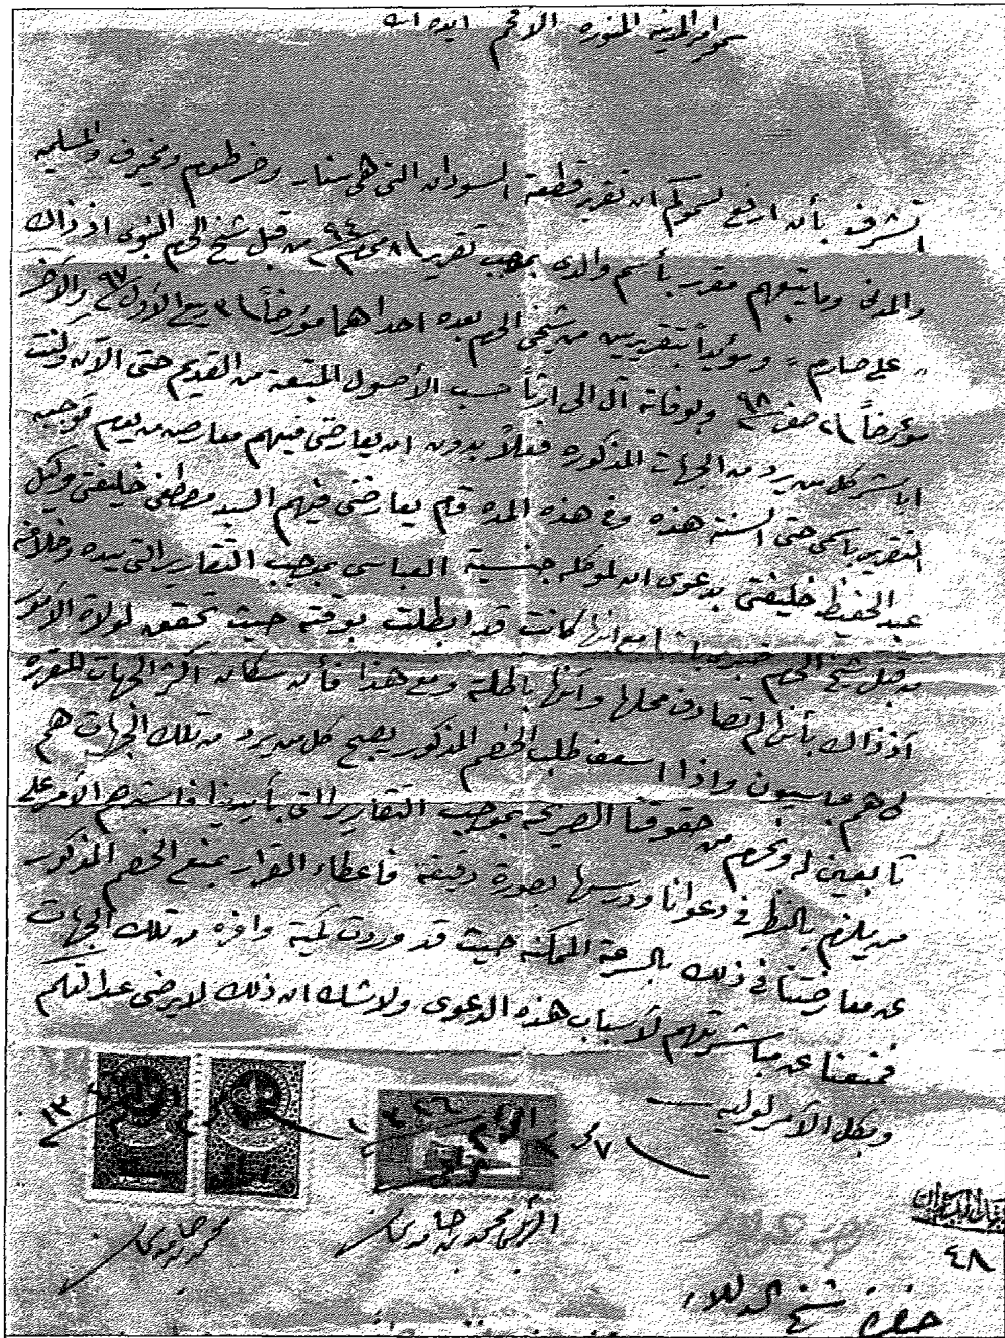 سمو امير المدينة المنوره الأفخم ايده الله
اتشرف بأن ارفع لسموكم ان تقرير قطعة السودان التى هى سنار وخرطوم ومخيرف والمسلميه
والمدنى وما يتبعهم مقرر بأسم والدى بموجب تقرير ١٨ محرم ٩٤ من قبل شيخ الحرم النبوى اذ ذاك
علي صارم ومؤيداً بتقريرين من شيخى الحرم بعده احداهما مؤرخاً ٣ ربيع الاول ٩٧ والآخر
مؤرخاً ٢١ صفر ٩٨ وبوفاته آل الي ارثاً حسب الأصول المتبعة من القديم حتى الآن وكنت
اباشر كل من يرد من الجهات المذكوره فعلاً بدون ان يعارضنى فيهم معارض من يوم توجيه
التقرير باسمى حتى السنة هذه وفى هذه المده قام يعارضنى فيهم السيد مصطفى خليفتى وكيل
عبد الحفيظ خليفتى بدعوى ان لموكله جنسية العباسى بموجب التقارير التى بيده وخلافه
من قبل شيخ الحرم مع انها كانت قد ابطلت بوقته حيث تحقق لولاة الأمور
اذ ذاك بأنها لم تصادف محلها وأنها باطلة ومع هذا فأن سكان اكثر الجهات المقرره
لى هم عباسيون واذا اسعف طلب الخصم المذكور يصبح كل من يرد من تلك الجهات هم
تابعين له ونحرم من حقوقنا الصريحه بموجب التقارير التى بأيدينا فاسترحم الأمر على
من يلزم بالنظر فى دعوانا ودرسها بصورة دقيقة فاعطاء القرار بمنع الخصم المذكور
عن معارضتنا فى ذلك بالسرعة الممكنه حيث قد وردت كمية وافره من تلك الجهات
فمنعنا عن مباشرتهم لأسباب هذه الدعوى ولاشك ان ذلك لايرضى عدالتكم
وبكل الأمر لوليه
٧ محرم
محمد
٤٨
حضرة شيخ الدلاء